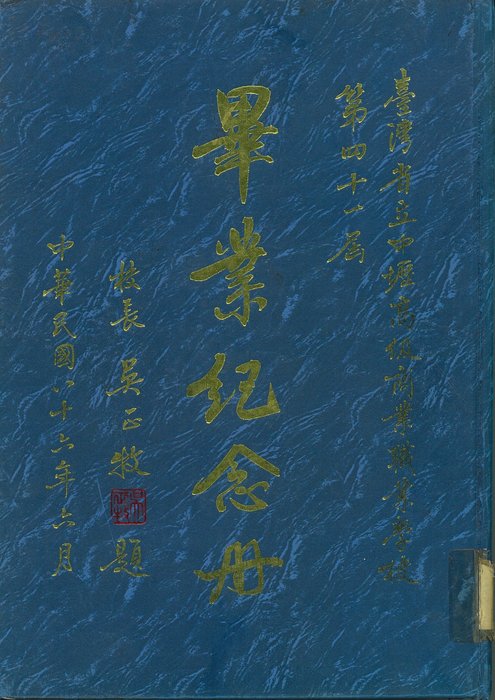 臺灣省立中壢高級商業職業學校
第四十一屆
畢業紀念册
校長 吳正牧 題
中華民國八十六年六月